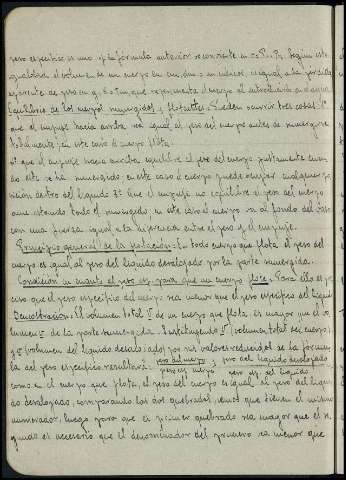 peso específico es uno y la fórmula anterior se convierte en = P - P₂. Según esta
igualdad el volumen de un cuerpo en cm. es igual a la pérdida
aparente de peso en g. que experimenta el cuerpo al introducirlo en el agua
Equilibrio de los cuerpos sumergidos y flotantes. Pueden ocurrir tres casos: 1º
que el empuje hacia arriba sea igual al peso del cuerpo antes de sumergirse
totalmente; en este caso el cuerpo flota.
2º que el empuje hacia arriba equilibre el peso del cuerpo justamente cuan-
do este se ha sumergido en este caso el cuerpo puede ocupar cualquier po-
sición dentro del líquido 3º Que el empuje no equilibre el peso del cuerpo
aun estando todo el sumergido en este caso el cuerpo va al fondo del vaso
con una fuerza igual a la diferencia entre el peso y el empuje.
Principio general de la flotación: En todo cuerpo que flota el peso del
cuerpo es igual al peso del líquido desalojado por la parte sumergida.
Condición en cuanto al peso esp. para que un cuerpo flote. Para ello es pre-
ciso que el peso específico del cuerpo sea menor que el peso específico del líquido
Demostración: El volumen total V de un cuerpo que flota, es mayor que el vo-
lumen V' de la parte sumergida. Sustituyendo V volumen total del cuerpo;
y V' volumen del líquido desalojado; por sus valores deducidos de la fórmu-
la del peso específico resultará: peso del cuerpo / peso esp. cuerpo > peso del líquido desalojado / peso esp. del líquido
como en el cuerpo que flota, el peso del cuerpo es igual al peso del líqui-
do desalojado, comparando los dos quebrados vemos que tienen el mismo
numerador; luego para que el primer quebrado sea mayor que el se-
gundo es necesario que el denominador del primero sea menor que